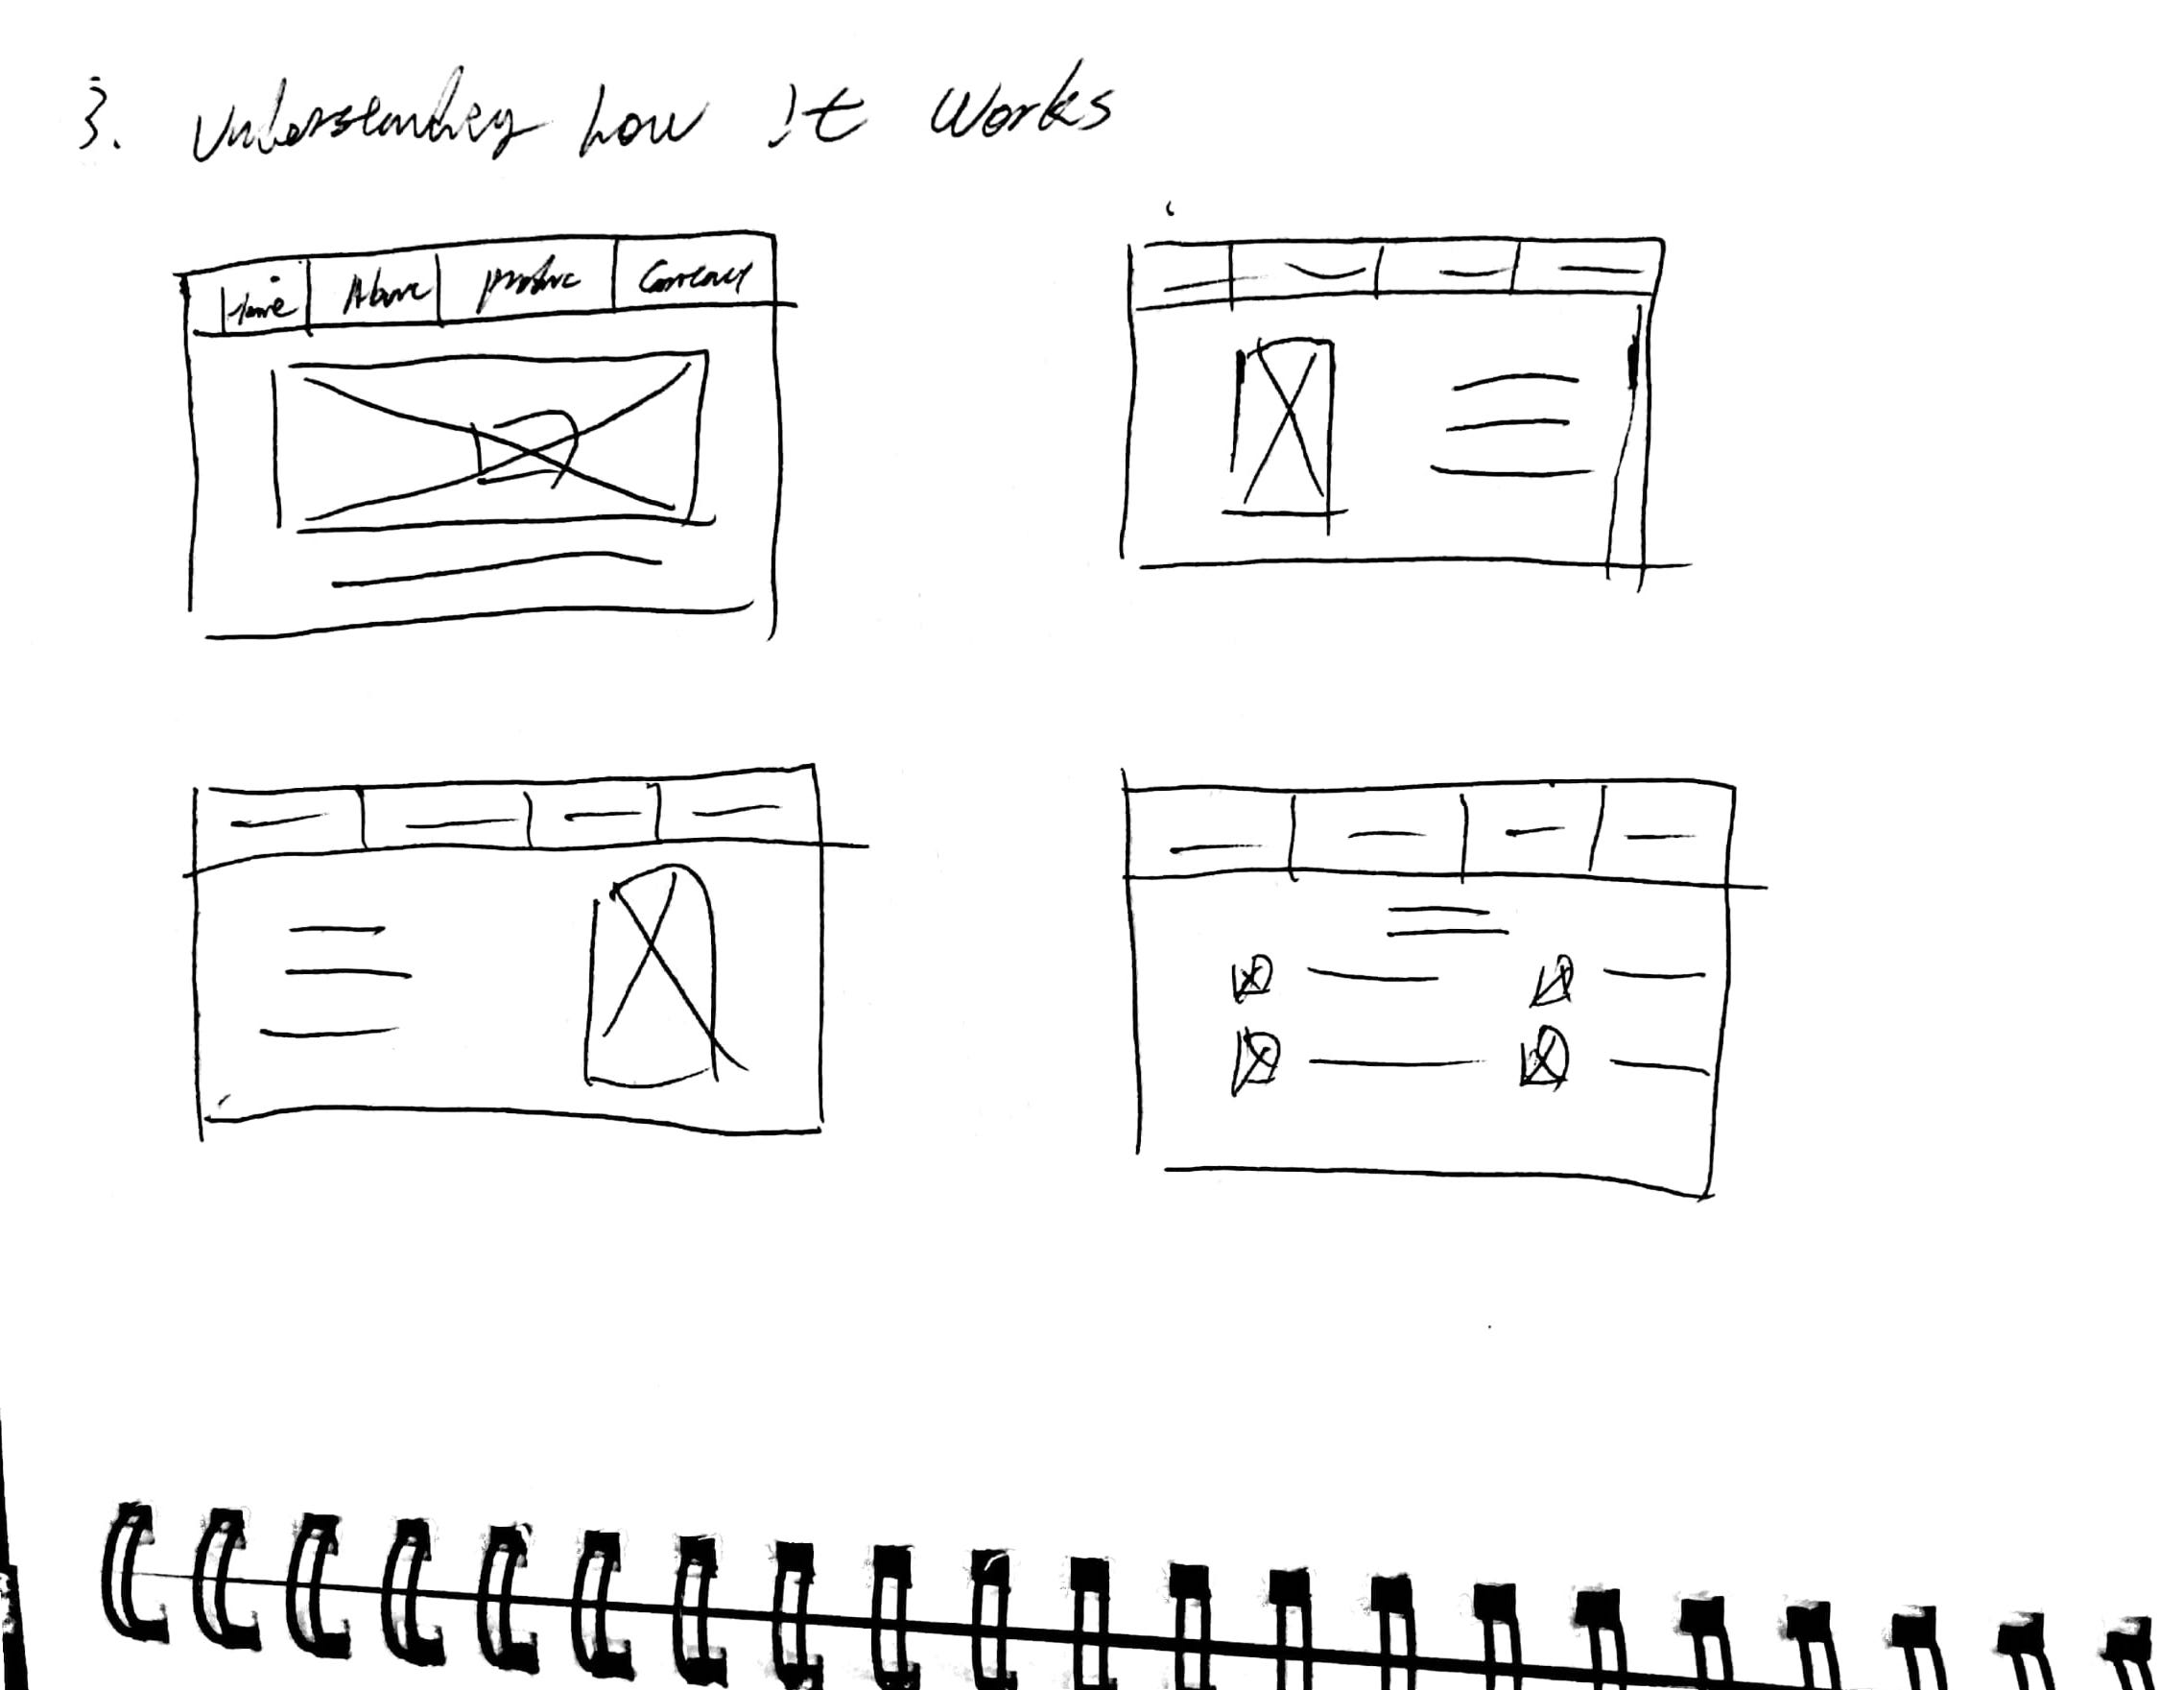 3. Understanding how it works
Home About product Contact